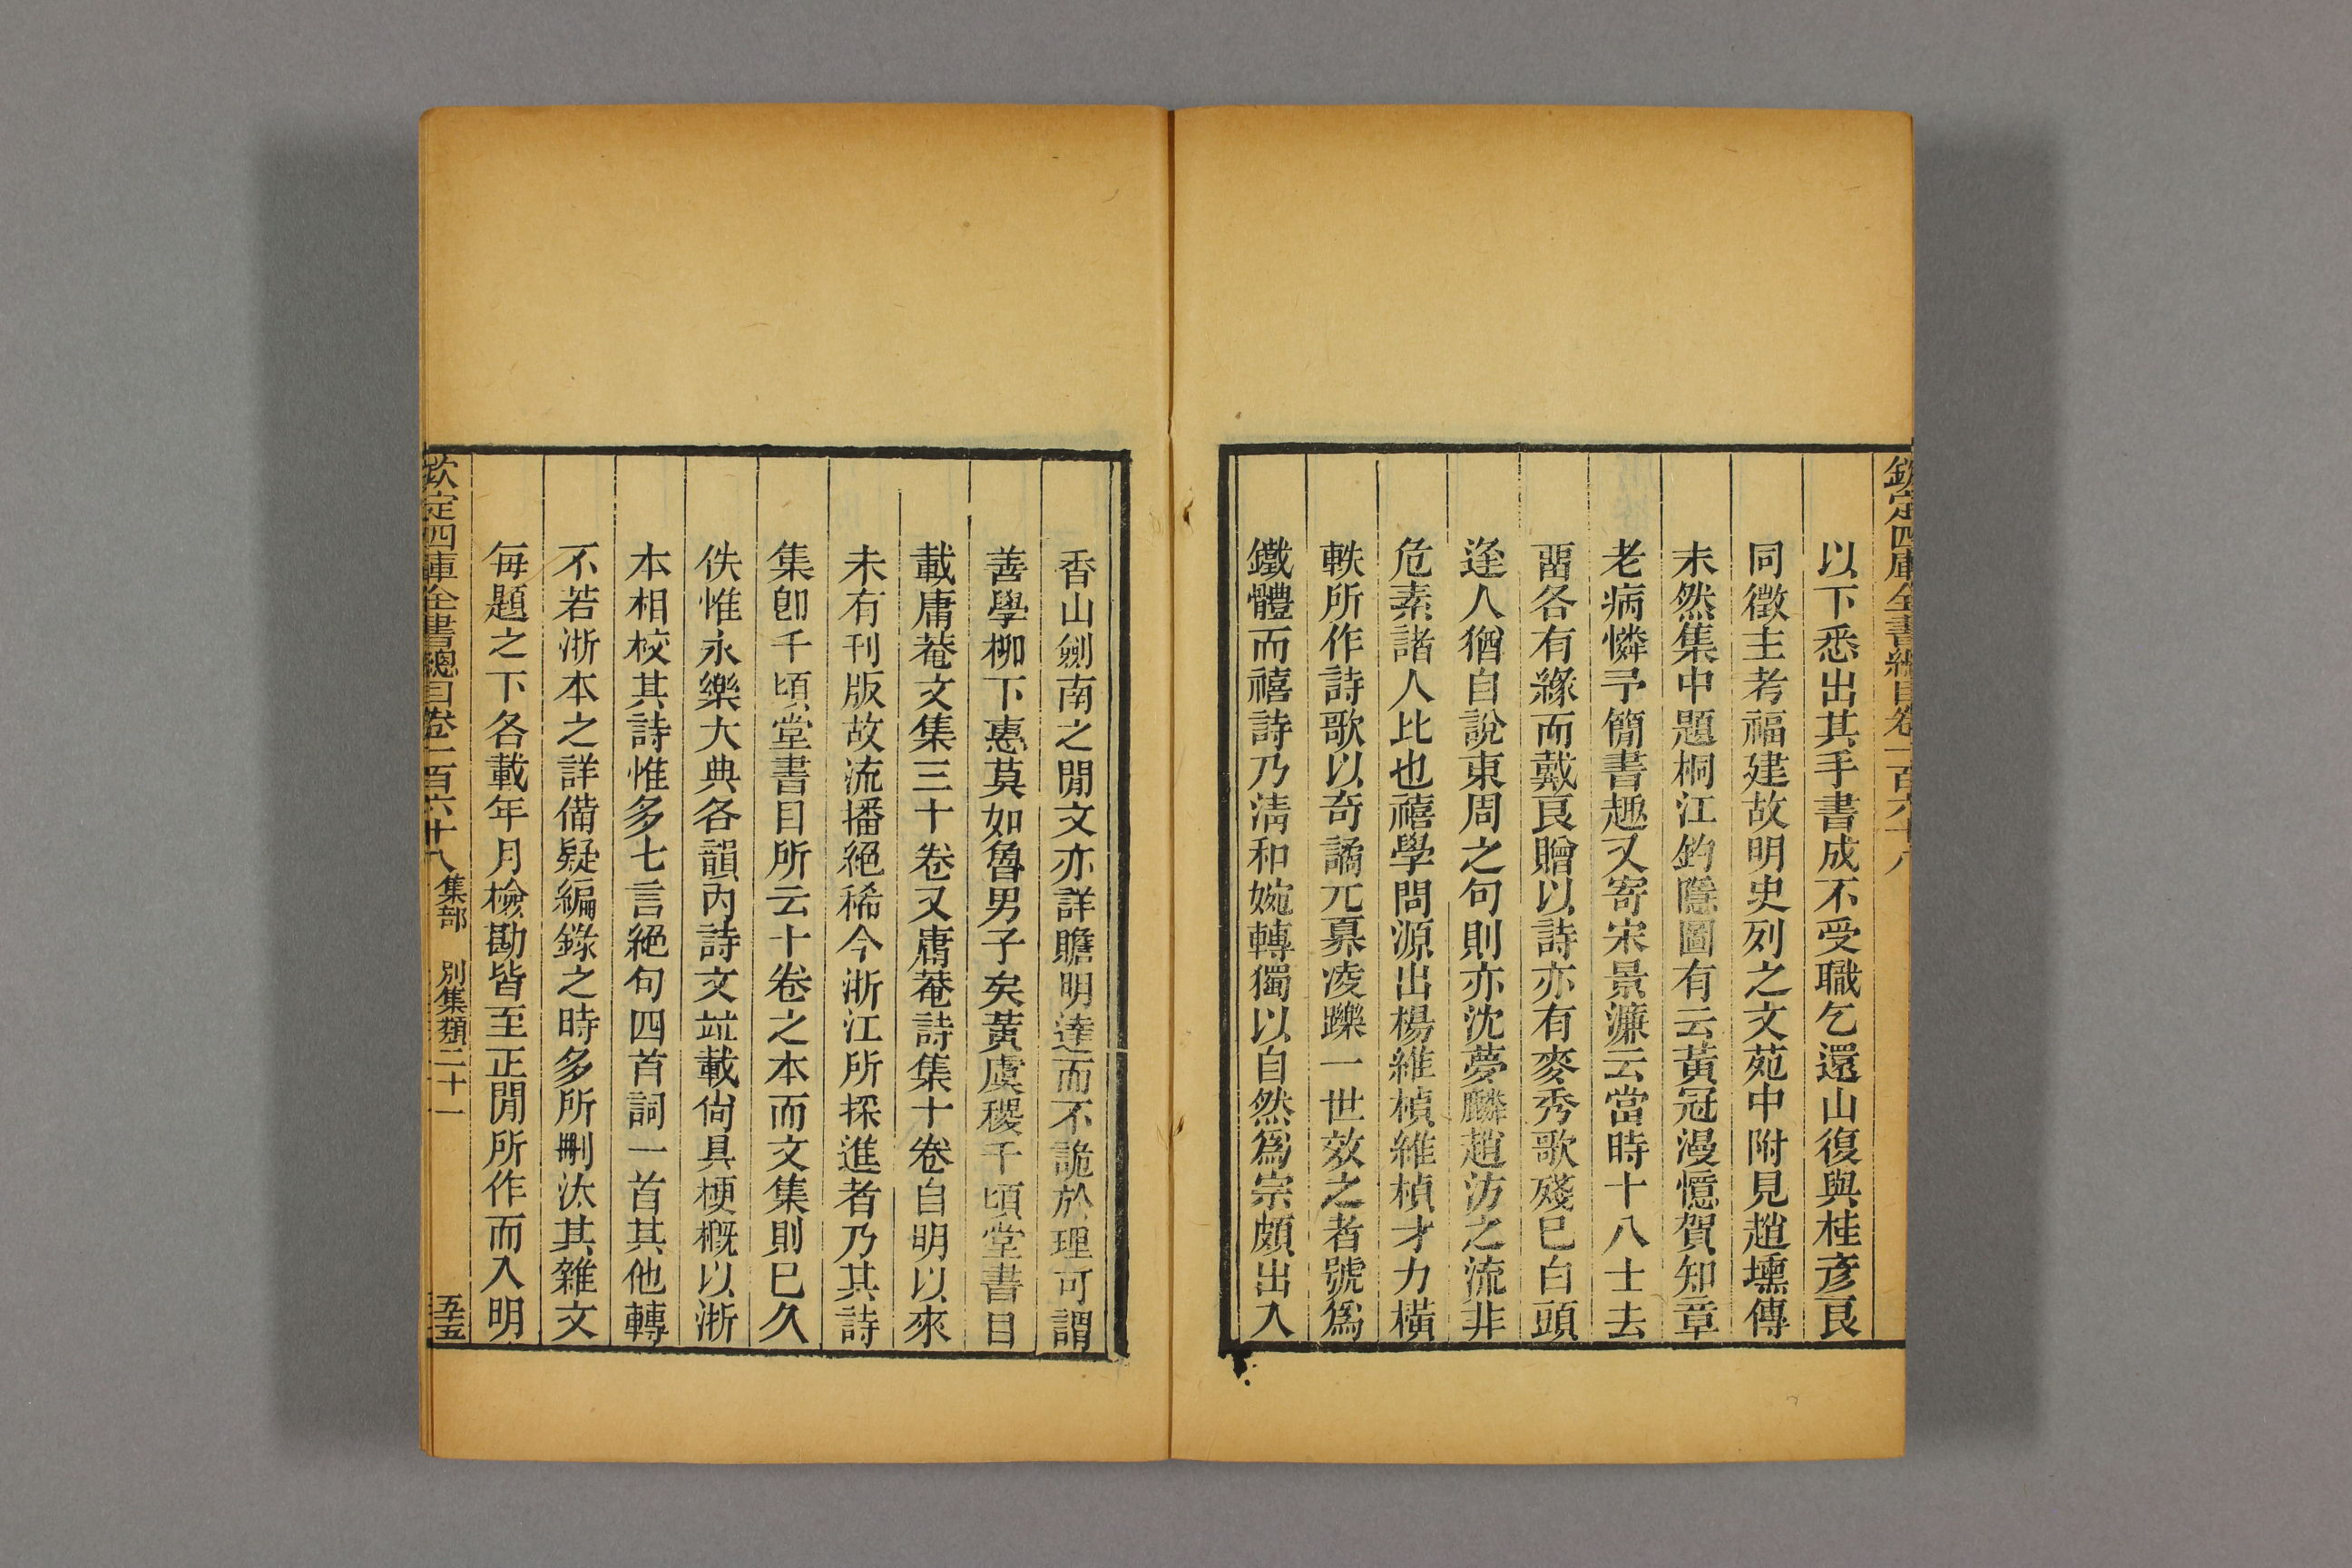 欽定四庫全書總目卷一百六十八
以下悉出其手書成不受職乞還山復與桂彥良
同徵主考福建故明史列之文苑中附見趙壎傳
末然集中題桐江釣隱圖有云黃冠漫憶賀知章
老病憐予簡書趣又寄宋景濂云當時十八士去
畱各有緣而戴良贈以詩亦有麥秀歌殘已白頭
逢人猶自說東周之句則亦沈夢麟趙汸之流非
危素諸人比也禧學問源出楊維楨維楨才力橫
軼所作詩歌以奇譎兀奡凌躒一世效之者號爲
鐵體而禧詩乃淸和婉轉獨以自然爲宗頗出入
香山劒南之閒文亦詳贍明達而不詭於理可謂
善學柳下惠莫如魯男子矣黃虞稷千頃堂書目
載庸菴文集三十卷又庸菴詩集十卷自明以來
未有刊版故流播絕稀今浙江所採進者乃其詩
集卽千頃堂書目所云十卷之本而文集則已久
佚惟永樂大典各韻內詩文竝載尙具梗槪以浙
本相校其詩惟多七言絕句四首詞一首其他轉
不若浙本之詳備疑編錄之時多所刪汰其雜文
每題之下各載年月檢勘皆至正閒所作而入明
欽定四庫全書總目卷一百六十八 集部 別集類二十一 五五